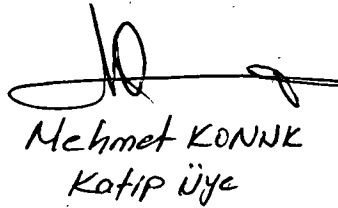 Mehmet KONUK
Katip Üye